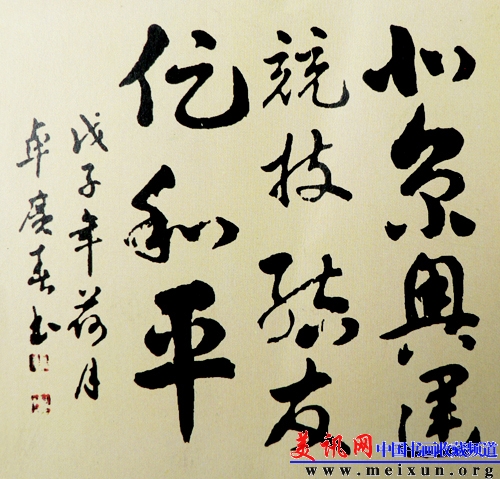 北京奥運
競技結友
促和平
戊子年荷月
廣春书
美讯网 中国书画收藏频道
www.meixun.org